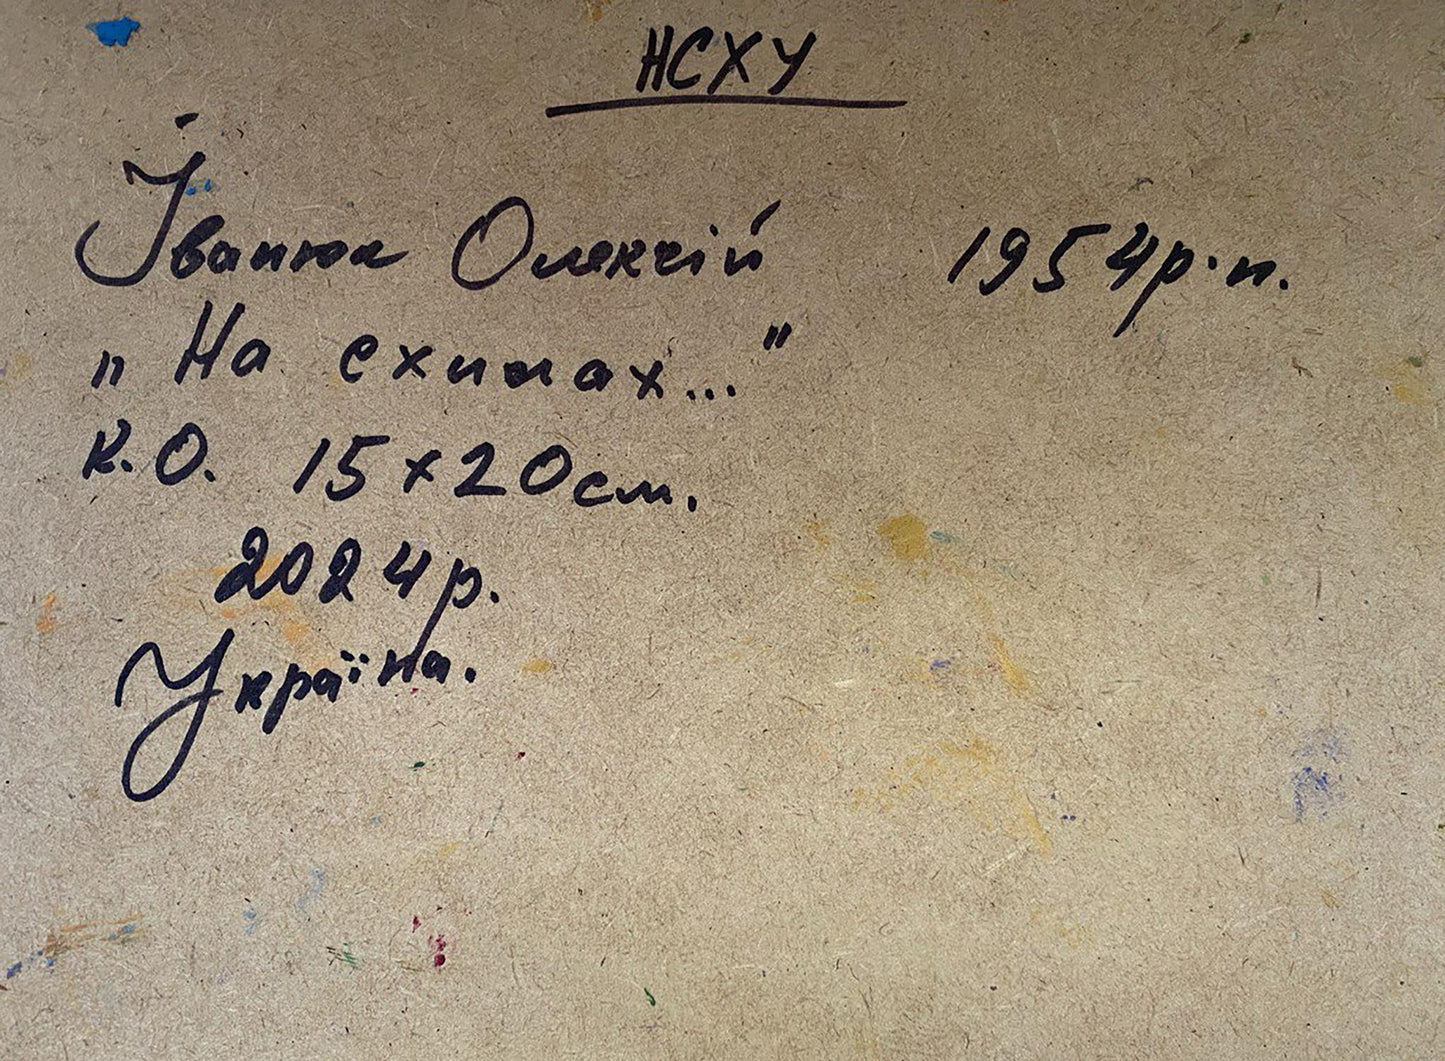 НСХУ
Іванюк Олексій 1954р.н.
„На схилах..."
К.О. 15х20см.
2024р.
Україна.